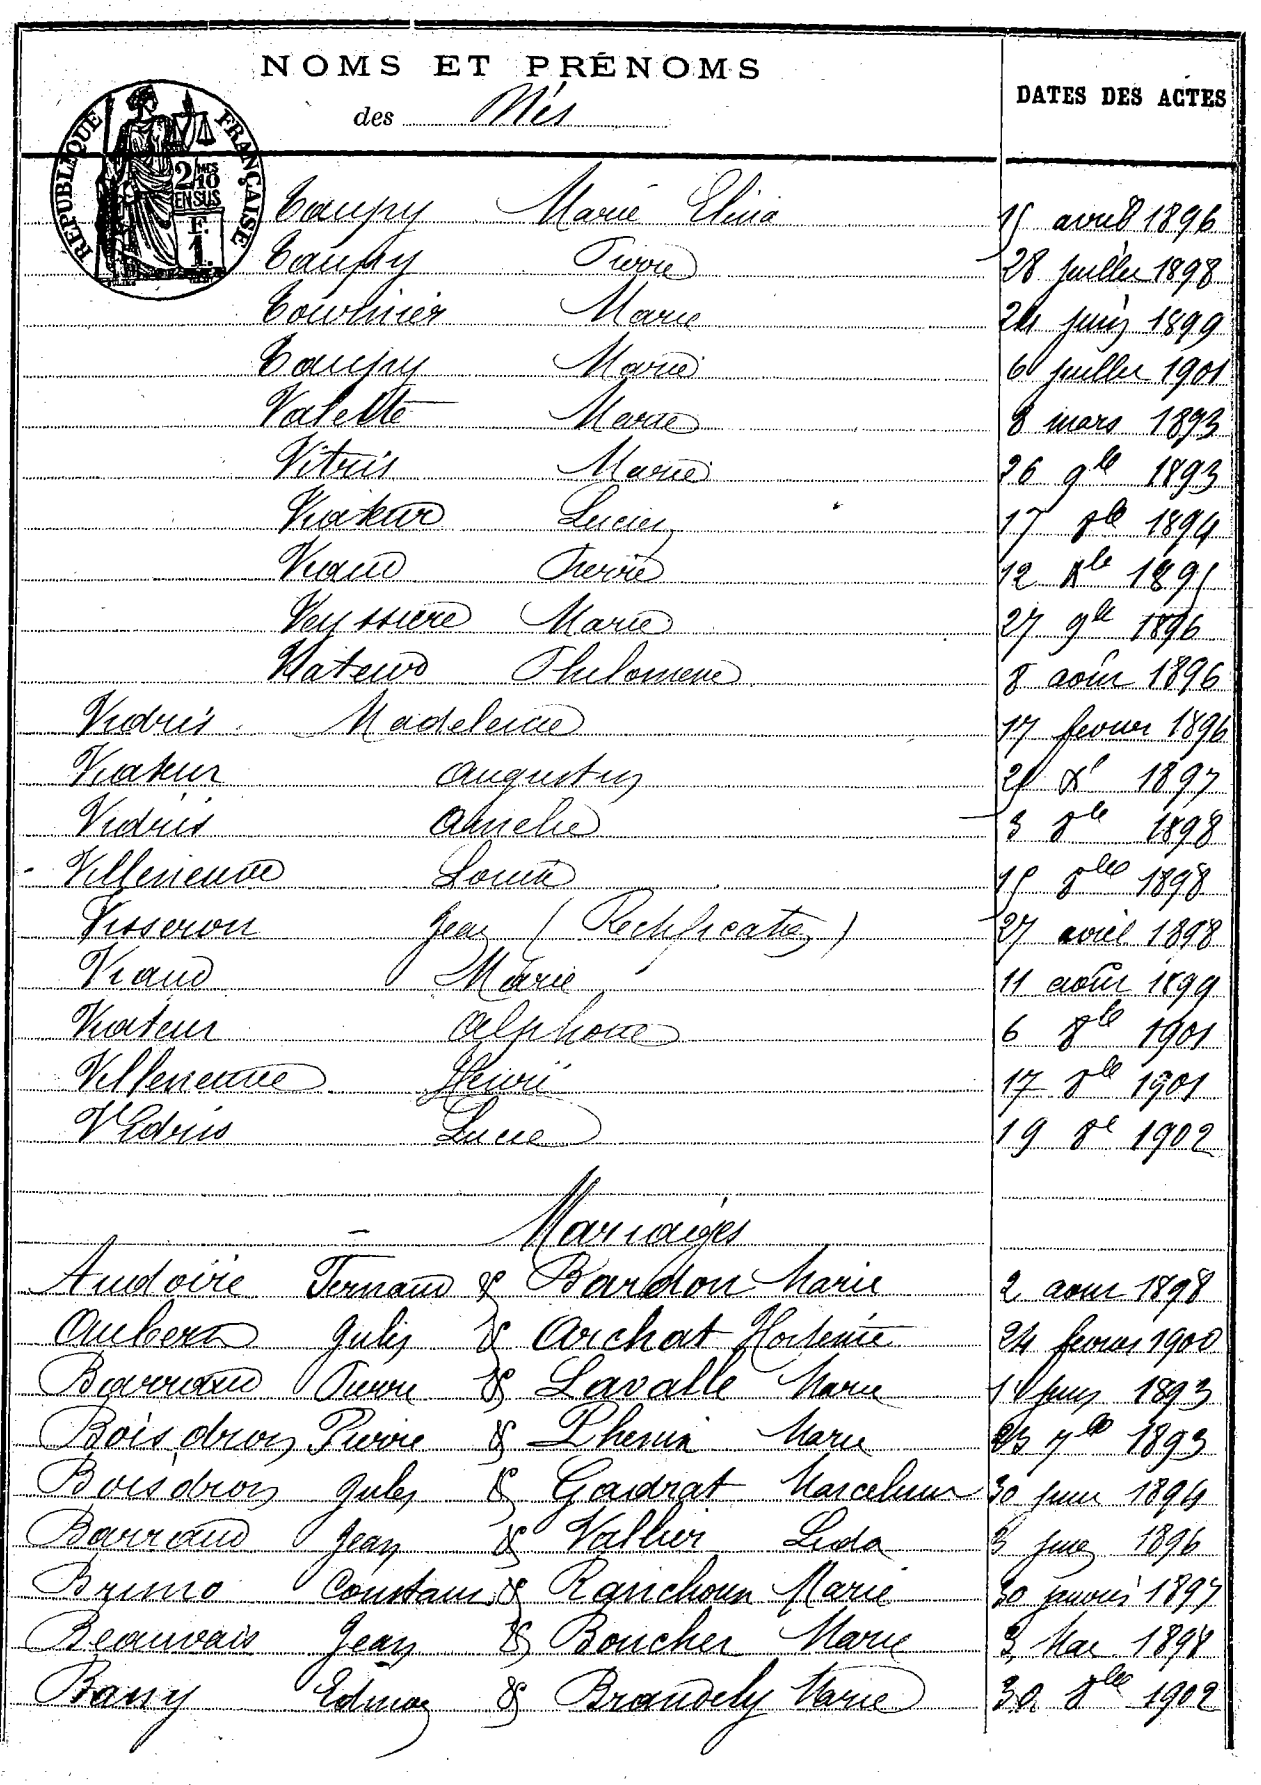 NOMS ET PRÉNOMS
des Nés
DATES DES ACTES
RÉPUBLIQUE FRANÇAISE
2/10 MES
EN SUS
F.
1.
Taupy Marie Elina 15 avril 1896
Taupy Pierre 28 juillet 1898
Tournier Marie 24 juin 1899
Taupy Marie 6 juillet 1901
Valette Marie 8 mars 1893
Vitris Marie 26 9bre 1893
Viateur Lucien 17 8bre 1894
Viaud Pierre 12 Xbre 1895
Veyssiere Marie 27 9bre 1896
Viateur Philomene 8 août 1896
Vidris Madeleine 17 fevrier 1896
Viateur Augustin 21 Xe 1897
Vidris Amelie 3 8bre 1898
Villeneuve Louis 15 8bre 1898
Visseron Jean (Rectification) 27 avril 1898
Viaud Marie 11 août 1899
Viateur Alphonse 6 8bre 1901
Villeneuve Henri 17 8bre 1901
Vidris Lucie 19 8e 1902
Mariages
Audoire Fernand & Bardon Marie 2 aout 1898
Aubert Jules & Archat Hortense 24 fevrier 1900
Barraud Pierre & Lavalle Marie juin 1893
Boisdron Pierre & Phenix Marie 23 7bre 1893
Boisdron Jules & Gadrat Marceline 30 juin 1894
Barraud Jean & Vallier Lida 3 juin 1896
Bruno Constant & Ranchoux Marie 30 janvier 1897
Beauvais Jean & Boucher Marie 3 Mai 1898
Bany Edmond & Brandely Marie 30 8bre 1902